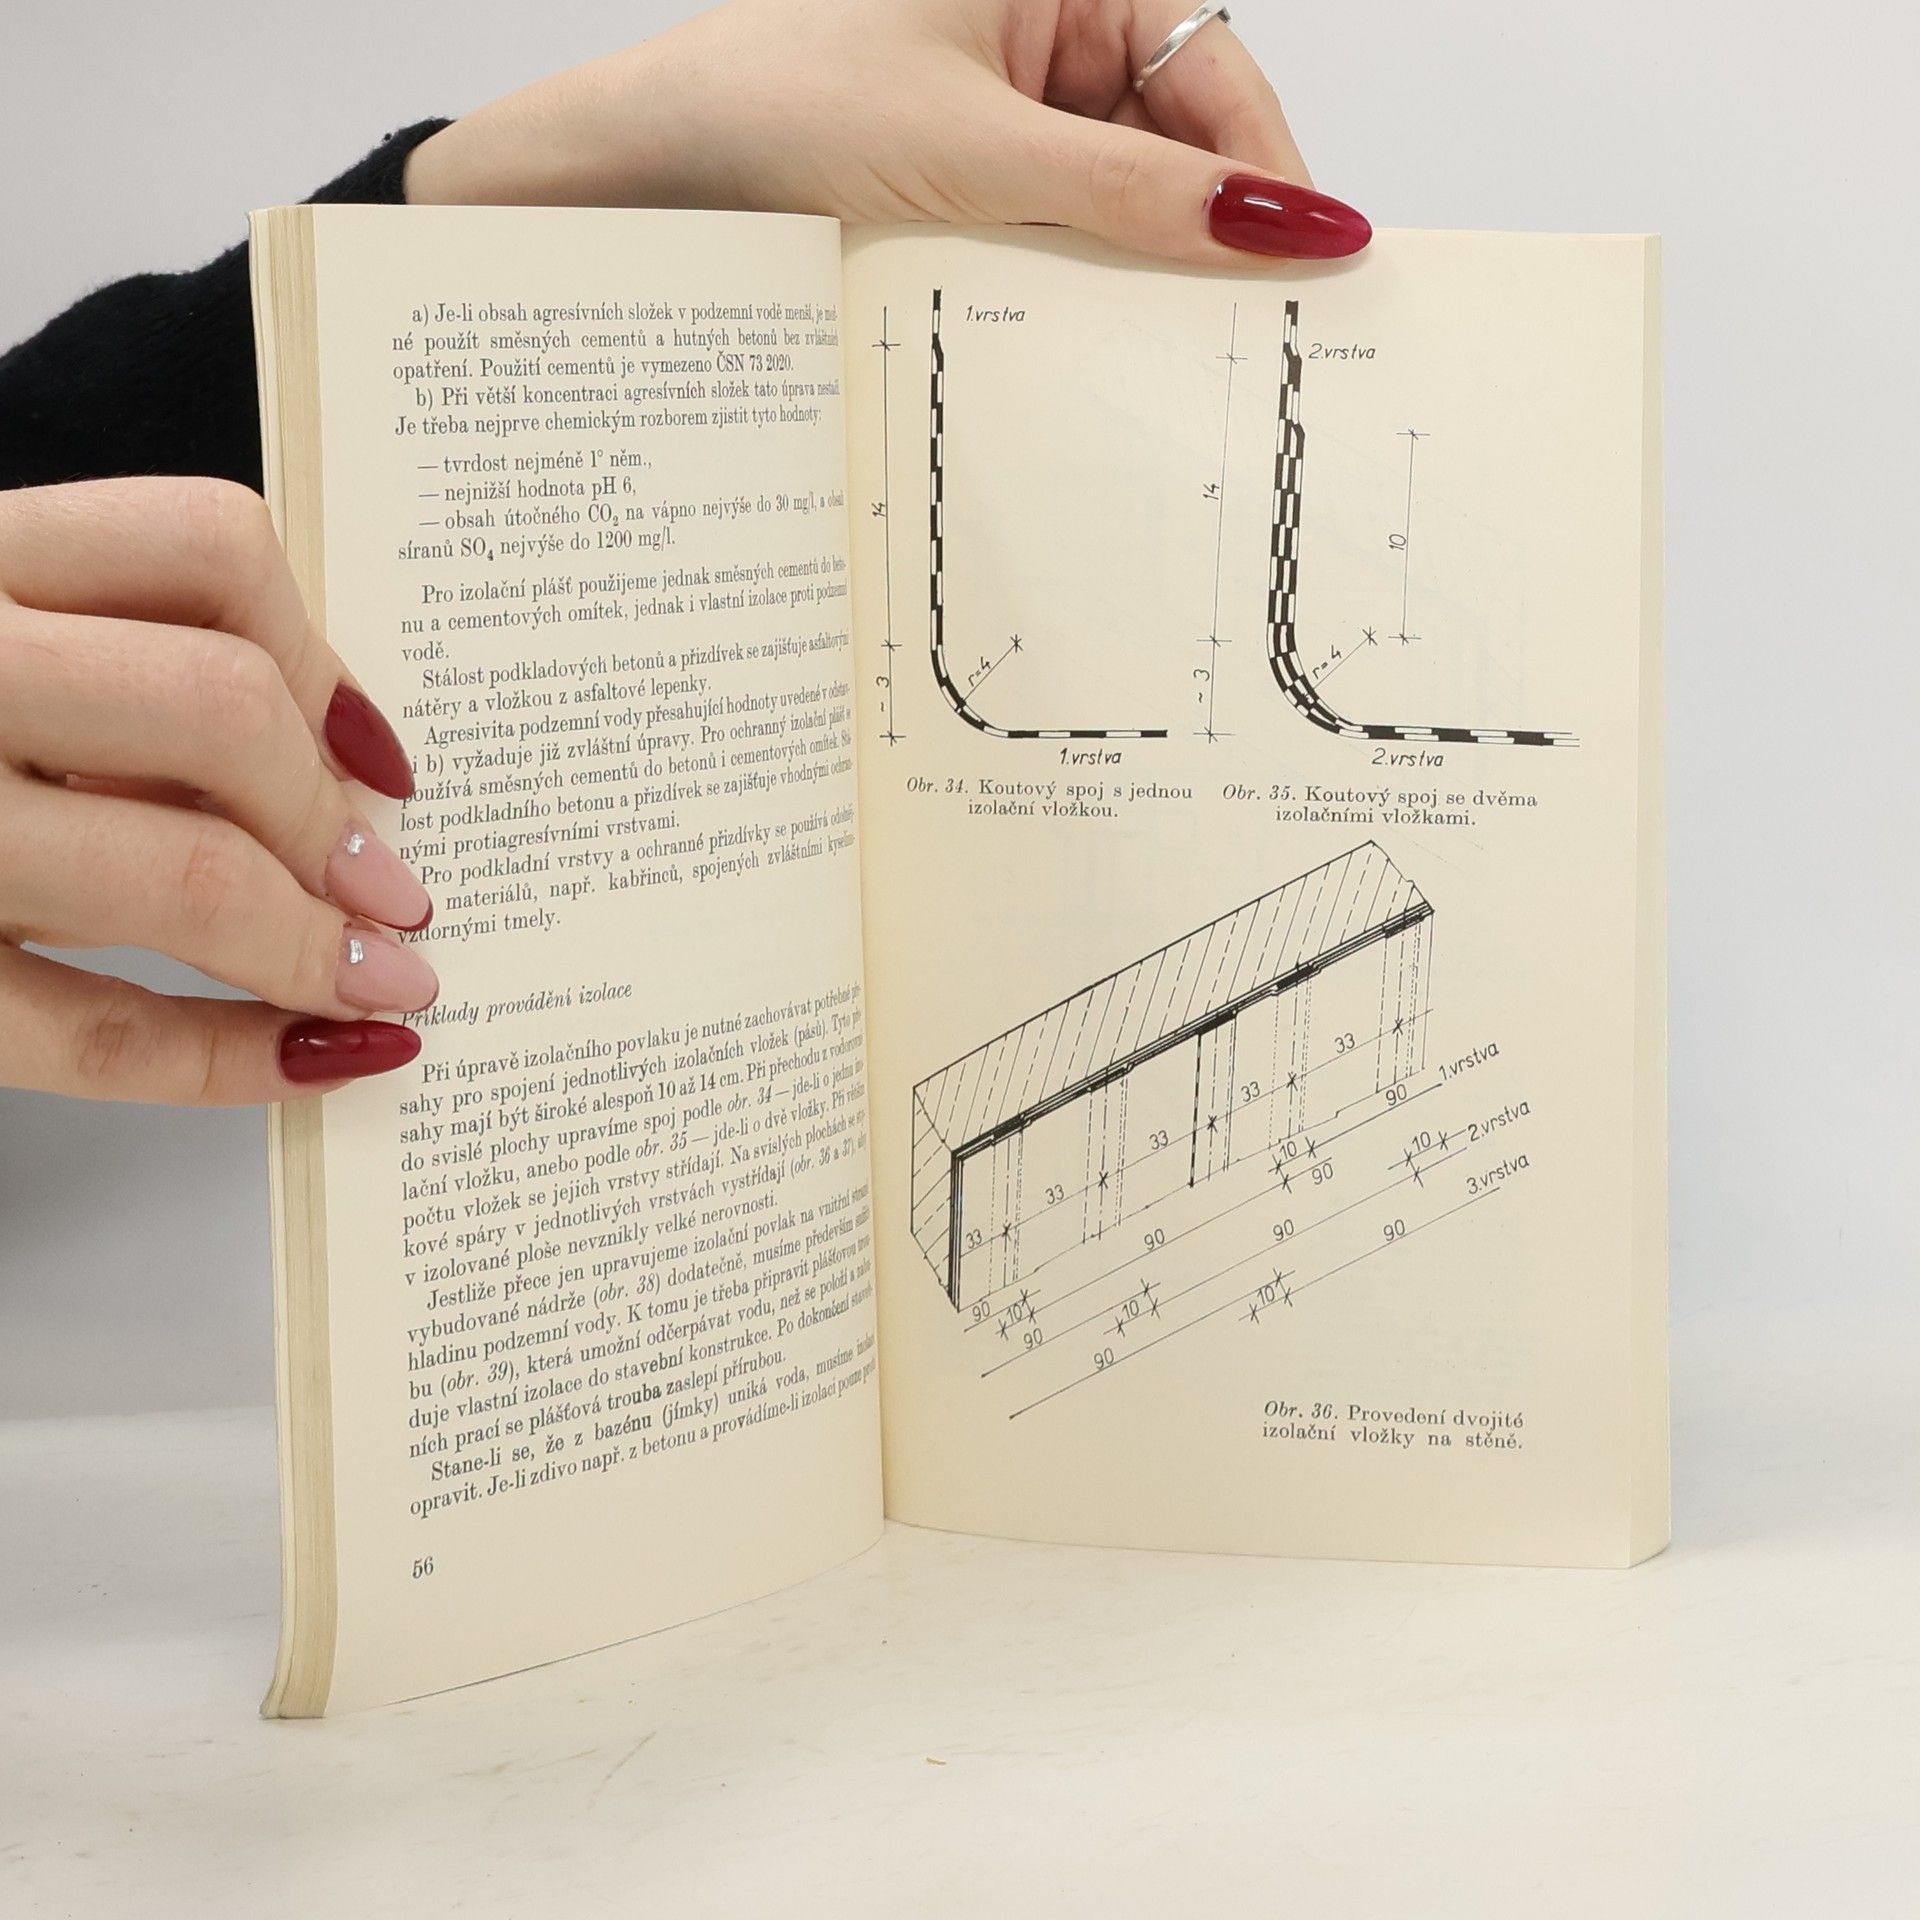 a) Je-li obsah agresívních složek v podzemní vodě menší, je mož-
né použít směsných cementů a hutných betonů bez zvláštních
opatření. Použití cementů je vymezeno ČSN 73 2020.
b) Při větší koncentraci agresívních složek tato úprava nestačí.
Je třeba nejprve chemickým rozborem zjistit tyto hodnoty:
— tvrdost nejméně 1° něm.,
— nejnižší hodnota pH 6,
— obsah útočného CO₂ na vápno nejvýše do 30 mg/l, a obsah
síranů SO₄ nejvýše do 1200 mg/l.
Pro izolační plášť použijeme jednak směsných cementů do beto-
nu a cementových omítek, jednak i vlastní izolace proti podzemní
vodě.
Stálost podkladových betonů a přizdívek se zajišťuje asfaltovými
nátěry a vložkou z asfaltové lepenky.
Agresivita podzemní vody přesahující hodnoty uvedené v odstav-
i b) vyžaduje již zvláštní úpravy. Pro ochranný izolační plášť se
používá směsných cementů do betonů i cementových omítek. Stá-
lost podkladního betonu a přizdívek se zajišťuje vhodnými ochran-
nými protiagresívními vrstvami.
Pro podkladní vrstvy a ochranné přizdívky se používá odolněj-
materiálů, např. kabřinců, spojených zvláštními kyselino-
vzdornými tmely.
Příklady provádění izolace
Při úpravě izolačního povlaku je nutné zachovávat potřebné pře-
sahy pro spojení jednotlivých izolačních vložek (pásů). Tyto pře-
sahy mají být široké alespoň 10 až 14 cm. Při přechodu z vodorovné
do svislé plochy upravíme spoj podle obr. 34 — jde-li o jednu izo-
lační vložku, anebo podle obr. 35 — jde-li o dvě vložky. Při větším
počtu vložek se jejich vrstvy střídají. Na svislých plochách se sty-
kové spáry v jednotlivých vrstvách vystřídají (obr. 36 a 37), aby
v izolované ploše nevznikly velké nerovnosti.
Jestliže přece jen upravujeme izolační povlak na vnitřní straně
vybudované nádrže (obr. 38) dodatečně, musíme především snížit
hladinu podzemní vody. K tomu je třeba připravit plášťovou trou-
bu (obr. 39), která umožní odčerpávat vodu, než se položí a zabu-
duje vlastní izolace do stavební konstrukce. Po dokončení staveb-
ních prací se plášťová trouba zaslepí přírubou.
Stane-li se, že z bazénu (jímky) uniká voda, musíme izolaci
opravit. Je-li zdivo např. z betonu a provádíme-li izolaci pouze proti
56
1.vrstva
14
~3
r=4
1.vrstva
Obr. 34. Koutový spoj s jednou
izolační vložkou.
2.vrstva
14
10
~3
r=4
2.vrstva
Obr. 35. Koutový spoj se dvěma
izolačními vložkami.
33
33
33
33
33
90
1.vrstva
10
90
10
2.vrstva
3.vrstva
90
90
90
90
10
90
10
10
90
Obr. 36. Provedení dvojité
izolační vložky na stěně.